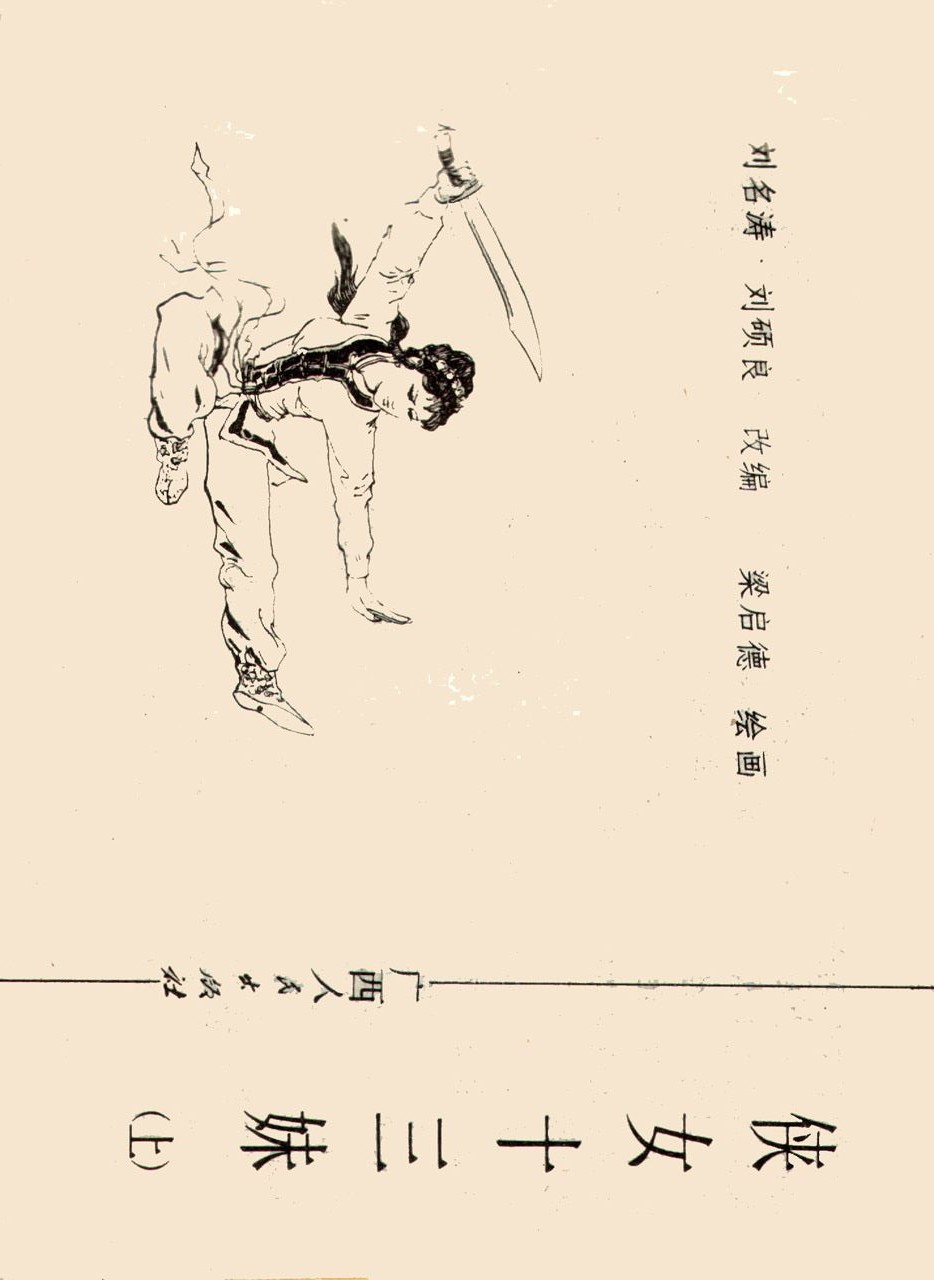 侠女十三妹
(上)
刘名涛·刘硕良 改编 梁启德 绘画
广西人民出版社